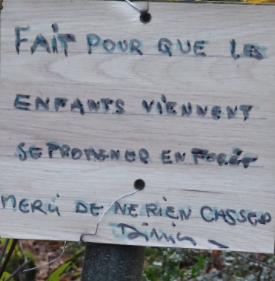 FAIT POUR QUE LES
ENFANTS VIENNENT
SE PROMENER EN FORÊT
MERCI DE NE RIEN CASSER